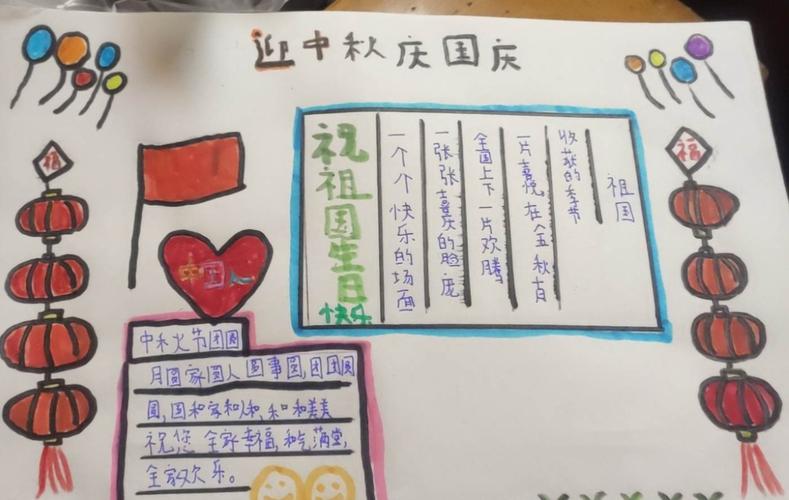 迎中秋庆国庆
福
福
中国人
祖国
收获的季节
一片喜悦在金秋十月
全国上下一片欢腾
一张张喜庆的脸庞
一个个快乐的场面
祝祖国生日快乐
中秋节团圆
月圆家圆人圆事圆,团团圆
圆,国和家和人和,和和美美
祝您全家幸福,和气满堂,
全家欢乐。